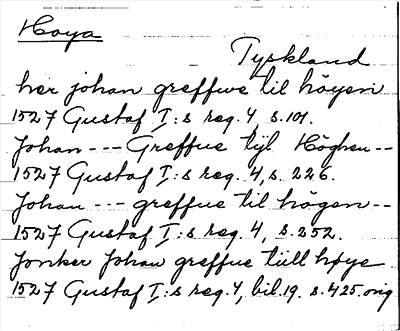 Hoya
Tyskland
her johan greffwe til höyen
1527 Gustaf I:s reg. 4, s. 101.
Johan --- Greffue tijl Höghen --
1527 Gustaf I:s reg. 4, s. 226.
Johan --- greffue til högen --
1527 Gustaf I:s reg. 4, s. 252.
Jonker Johan greffue tiill høye
1527 Gustaf I:s reg. 4, bil. 19. s. 425. orig